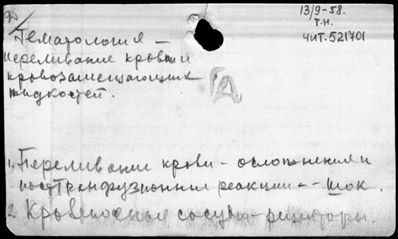 13/9-58.
Т.Н.
чит. 521701
Гематология –
переливание крови и
кровозамещающих
жидкостей.
1. Переливание крови – осложнения и
посттрансфузионные реакции – шок.
2. Кровеносные сосуды – рецепторы.